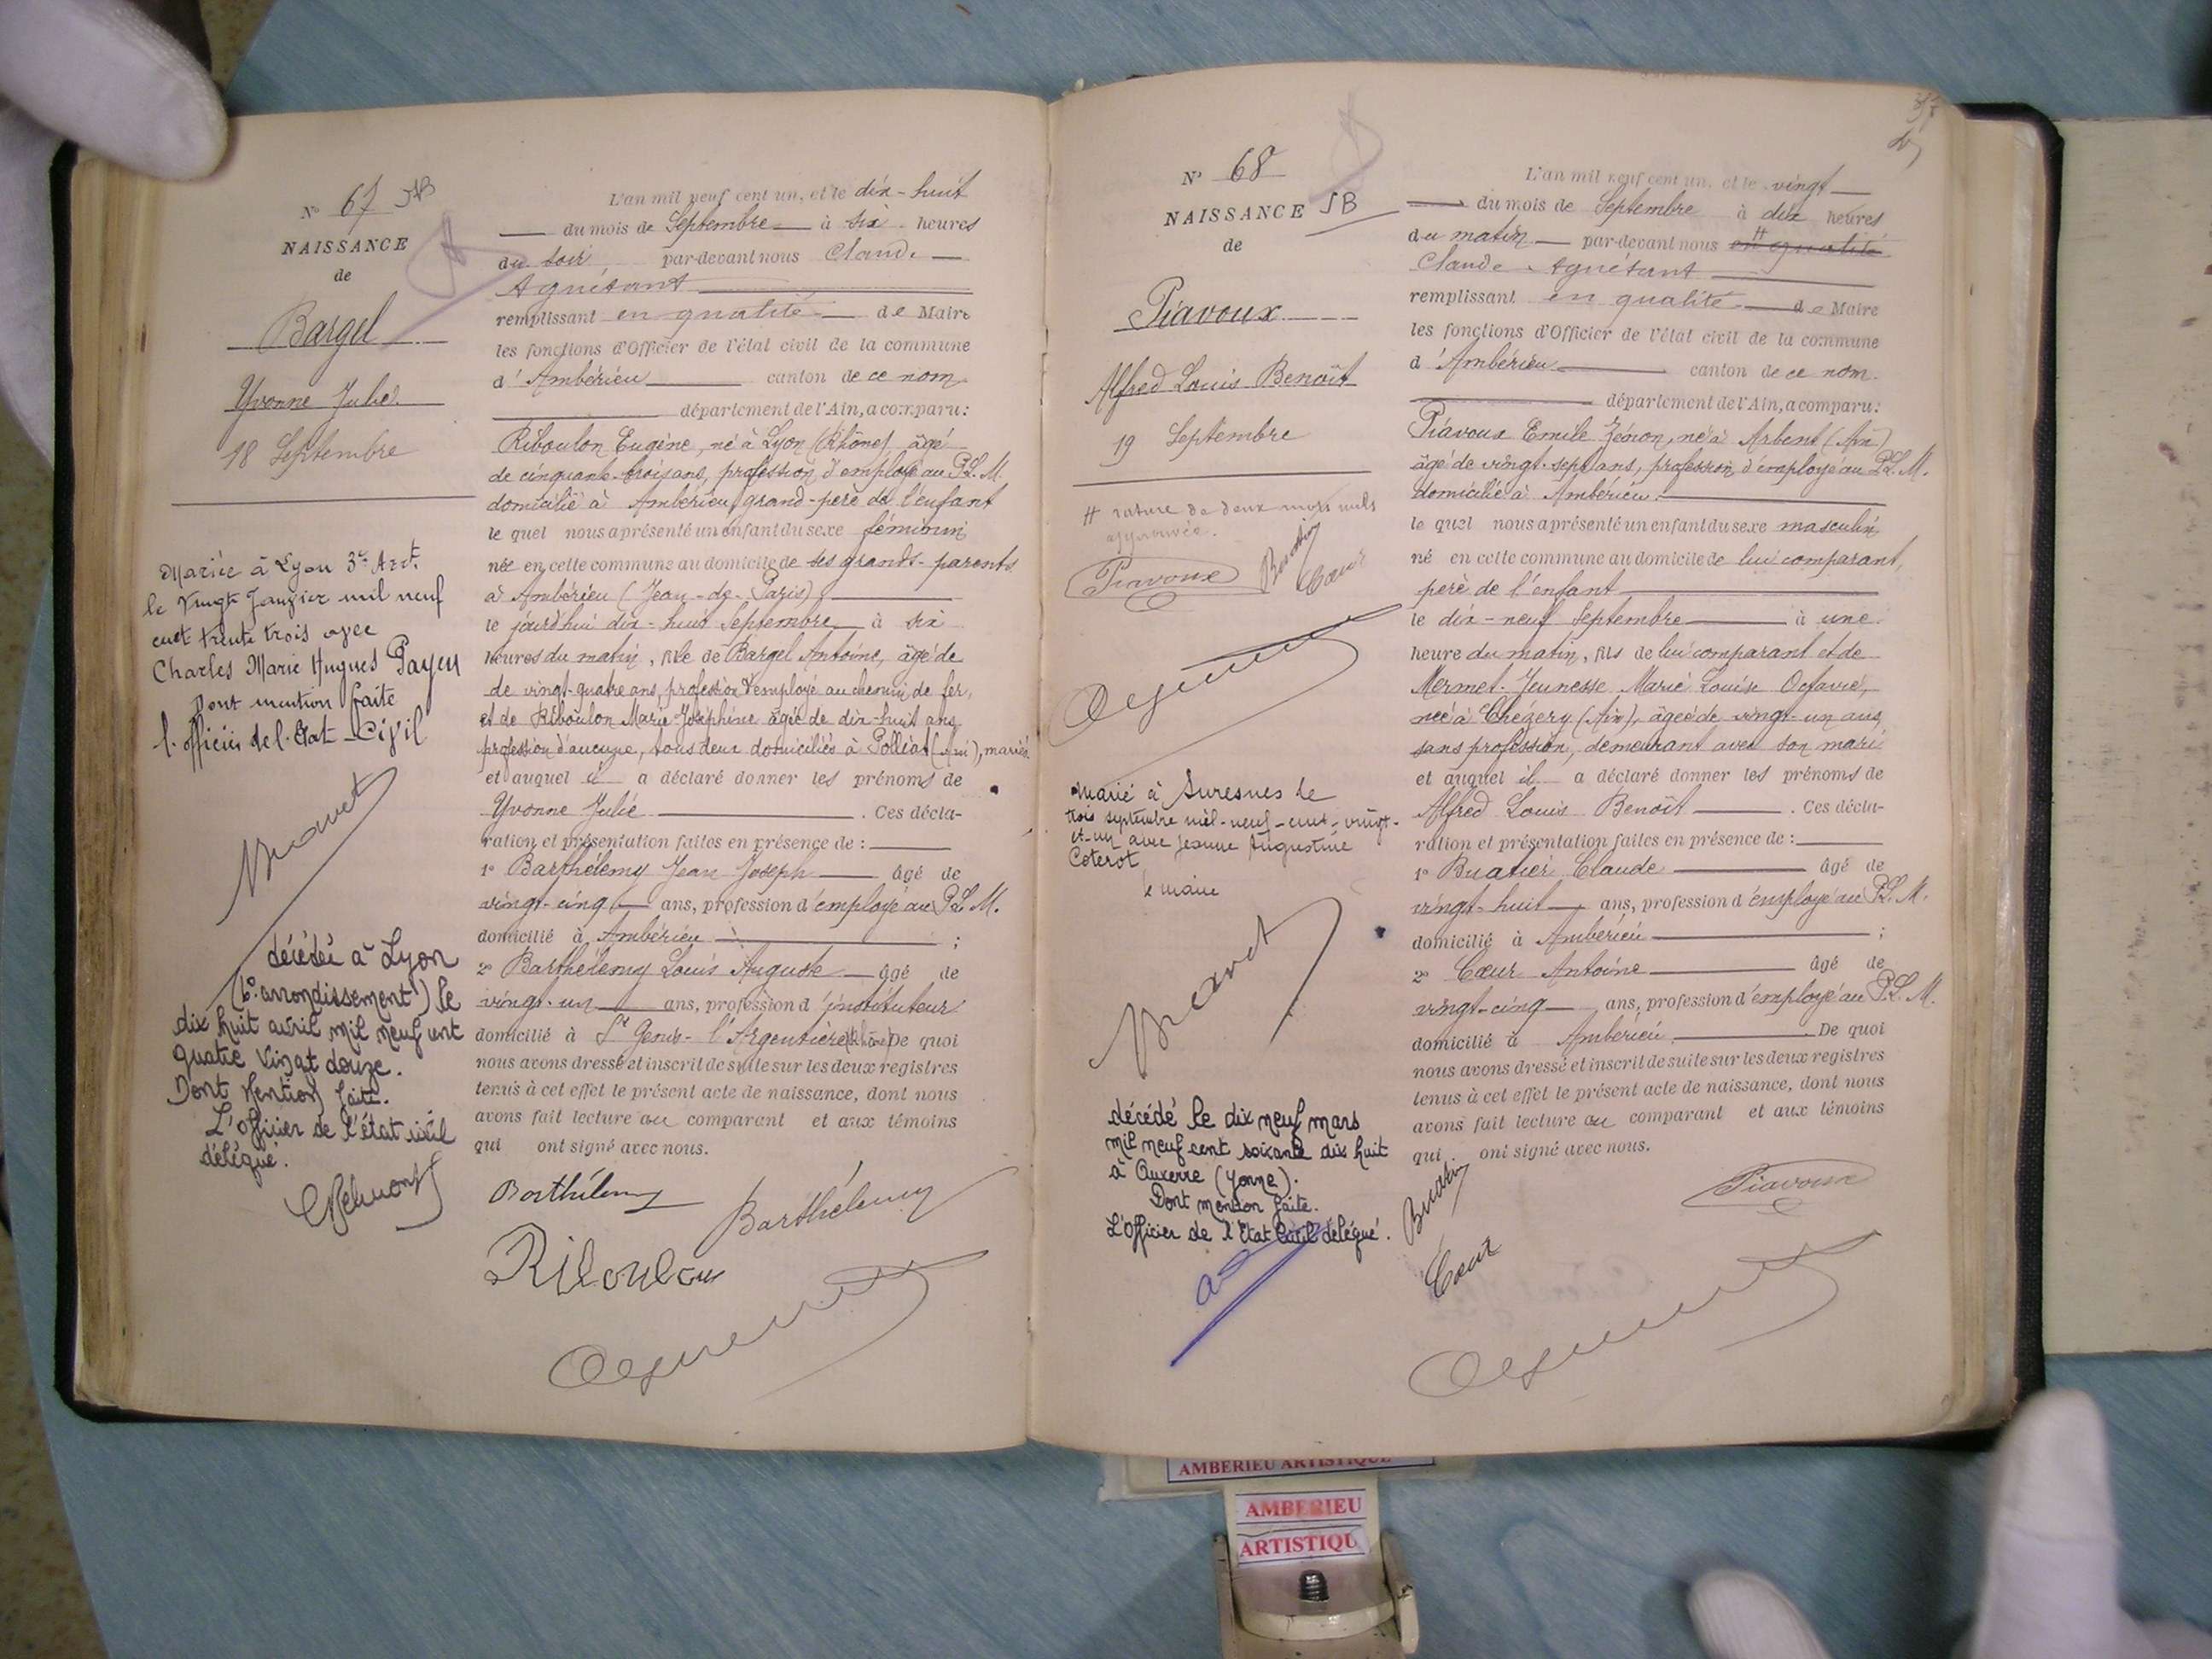 N° 67 JB
NAISSANCE
de
Bargel
Yvonne Julie
18 Septembre
Mariée à Lyon 3e Arrt.
le vingt Janvier mil neuf
cent trente trois avec
Charles Marie Hugues Payen
Dont mention faite
l'officier de l'Etat-Civil
décédée à Lyon
(6e arrondissement) le
dix huit avril mil neuf cent
quatre vingt douze.
Dont Mention faite.
L'officier de l'état civil
délégué.
L'an mil neuf cent un, et le dix-huit
du mois de Septembre à six heures
du soir par-devant nous Claude
Agnésant
remplissant en qualité de Maire
les fonctions d'Officier de l'état civil de la commune
d'Ambérieu canton de ce nom.
département de l'Ain, a comparu:
Riboulon Eugène, né à Lyon (Rhône) âgé
de cinquante-trois ans, profession d'employé au P.L.M.
domicilié à Ambérieu, grand-père de l'enfant
le quel nous a présenté un enfant du sexe féminin
née en cette commune au domicile de ses grands-parents
à Ambérieu (Jean-de-Paris)
le jourd'hui dix-huit Septembre à six
heures du matin, fille de Bargel Antoine, âgé de
de vingt-quatre ans, profession d'employé au chemin de fer,
et de Riboulon Marie Joséphine âgée de dix-huit ans
profession d'aucune, tous deux domiciliés à Polliat (Ain), mariés.
et auquel il a déclaré donner les prénoms de
Yvonne Julie . Ces décla-
ration et présentation faites en présence de :
1° Barthélemy Jean Joseph âgé de
vingt-cinq ans, profession d'employé au P.L.M.
domicilié à Ambérieu ;
2° Barthélemy Louis Auguste âgé de
vingt-un ans, profession d'instituteur
domicilié à St Genis-l'Argentière (Rhône) De quoi
nous avons dressé et inscrit de suite sur les deux registres
tenus à cet effet le présent acte de naissance, dont nous
avons fait lecture au comparant et aux témoins
qui ont signé avec nous.
Barthélemy
Barthélemy
Riboulon
N° 68
NAISSANCE JB
de
Piavoux
Alfred Louis Benoît
19 Septembre
# rature de deux mots nuls
approuvée.
Piavoux
Buatier
Coeur
Marié à Suresnes le
trois septembre mil-neuf-cent-vingt-
et-un avec Jeanne Augustine
Coterot
le maire
décédé le dix neuf mars
mil neuf cent soixante dix huit
à Auxerre (Yonne).
Dont mention faite.
L'Officier de l'Etat Civil délégué.
L'an mil neuf cent un, et le vingt
du mois de Septembre à dix heures
du matin par-devant nous # en qualité
Claude Agnésant
remplissant en qualité de Maire
les fonctions d'Officier de l'état civil de la commune
d'Ambérieu canton de ce nom.
département de l'Ain, a comparu:
Piavoux Emile Zénon, né à Arbent (Ain)
âgé de vingt-sept ans, profession d'employé au P.L.M.
domicilié à Ambérieu.
le quel nous a présenté un enfant du sexe masculin
né en cette commune au domicile de lui comparant,
père de l'enfant
le dix-neuf Septembre à une
heure du matin, fils de lui comparant et de
Mermet-Jeunesse Marie Louise Octavie,
née à Chézery (Ain), âgée de vingt-un ans,
sans profession, demeurant avec son mari
et auquel il a déclaré donner les prénoms de
Alfred Louis Benoît . Ces décla-
ration et présentation faites en présence de :
1° Buatier Claude âgé de
vingt-huit ans, profession d'employé au P.L.M.
domicilié à Ambérieu ;
2° Coeur Antoine âgé de
vingt-cinq ans, profession d'employé au P.L.M.
domicilié à Ambérieu. De quoi
nous avons dressé et inscrit de suite sur les deux registres
tenus à cet effet le présent acte de naissance, dont nous
avons fait lecture au comparant et aux témoins
qui ont signé avec nous.
Buatier
Piavoux
Coeur
AMBERIEU ARTISTIQUE
AMBERIEU
ARTISTIQU